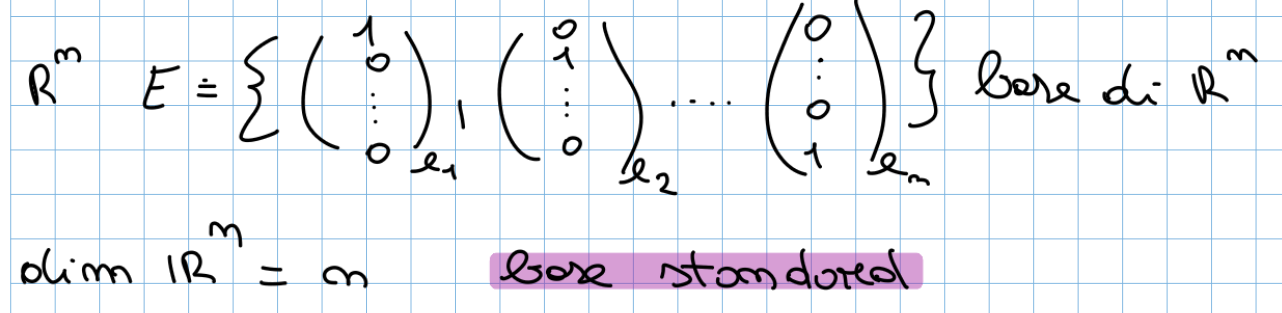 ℝⁿ E ≐ { (1 0 ⋮ 0)e₁, (0 1 ⋮ 0)e₂ .... (0 ⋮ 0 1)eₙ } base di ℝⁿ
dim ℝⁿ = n base standard